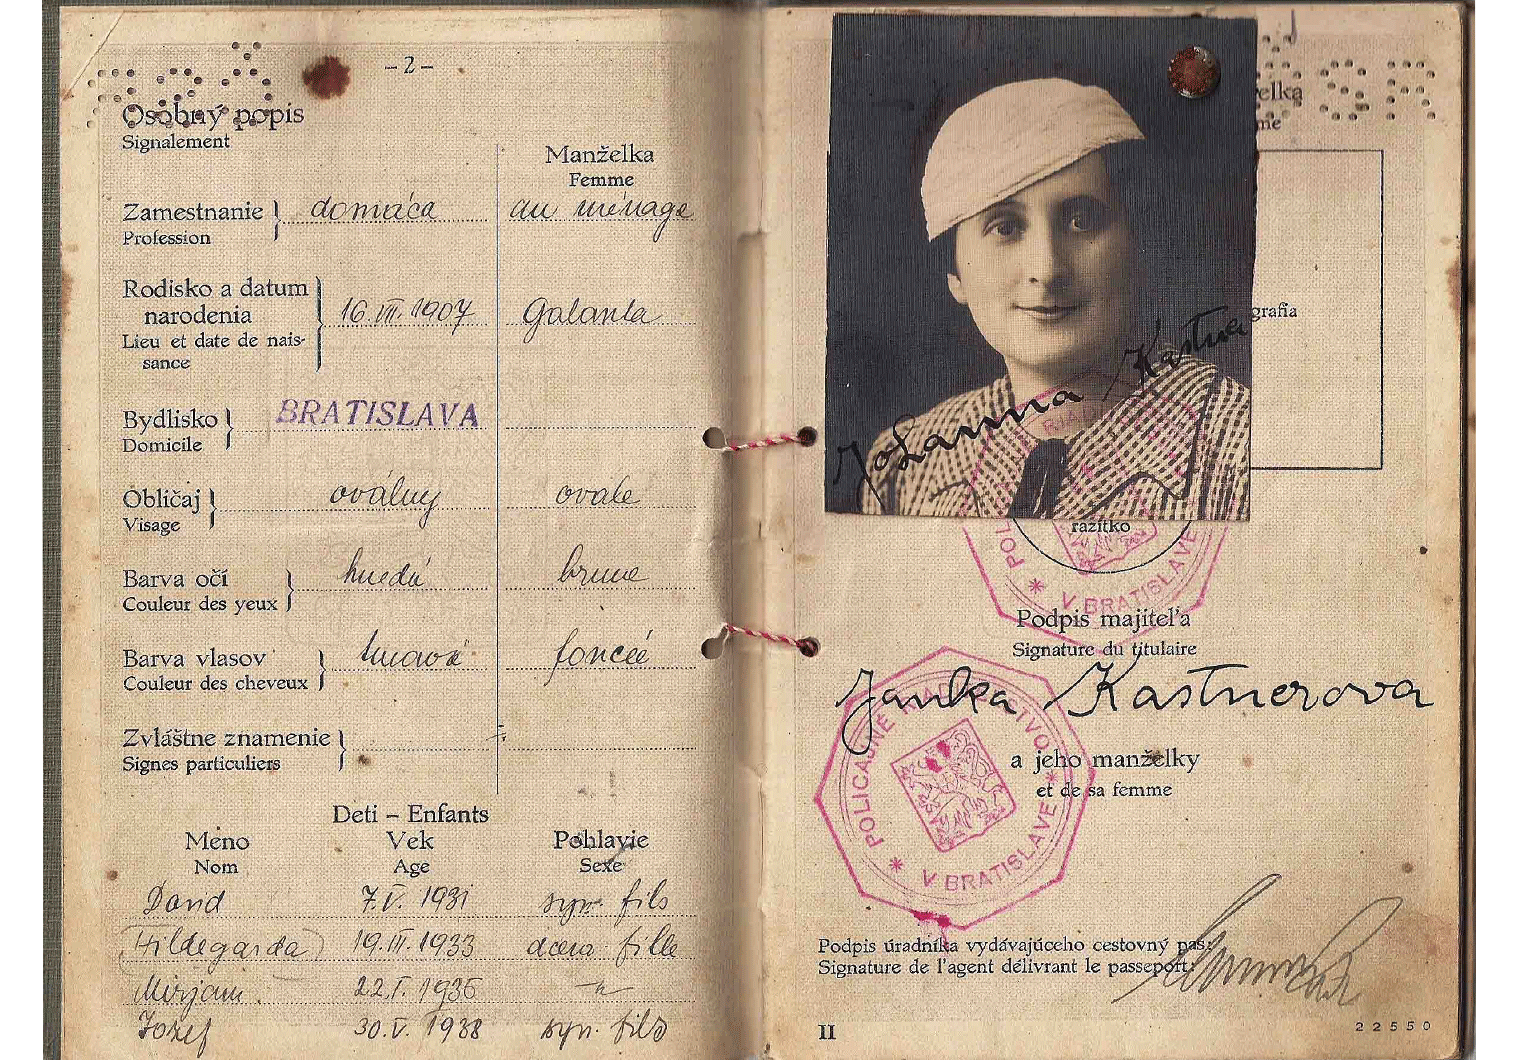 -2-
Osobný popis
Signalement
Manželka
Femme
Zamestnanie domáca au ménage
Profession
Rodisko a datum
narodenia 16.VII.1907 Galanta
Lieu et date de nais-
sance
Bydlisko BRATISLAVA
Domicile
Obličaj oválny ovale
Visage
Barva očí hnedá brune
Couleur des yeux
Barva vlasov tmavá foncée
Couleur des cheveux
Zvláštne znamenie
Signes particuliers
Deti - Enfants
Meno Vek Pohlavie
Nom Age Sexe
David 7.V. 1931 syn. fils
(Hildegarda) 19.III.1933 dcera fille
Mirjam. 22.I.1936 -"-
Jozef 30.V.1938 syn. fils
ČSR
elka
me
grafia
Johanna Kastne
razítko
POL V BRATISLAVE
Podpis majiteľa
Signature du titulaire
Janka Kastnerova
POLICAJNÉ RIADITEĽSTVO V BRATISLAVE
a jeho manželky
et de sa femme
Podpis úradníka vydávajúceho cestovný pas:
Signature de l'agent délivrant le passeport:
II
22550